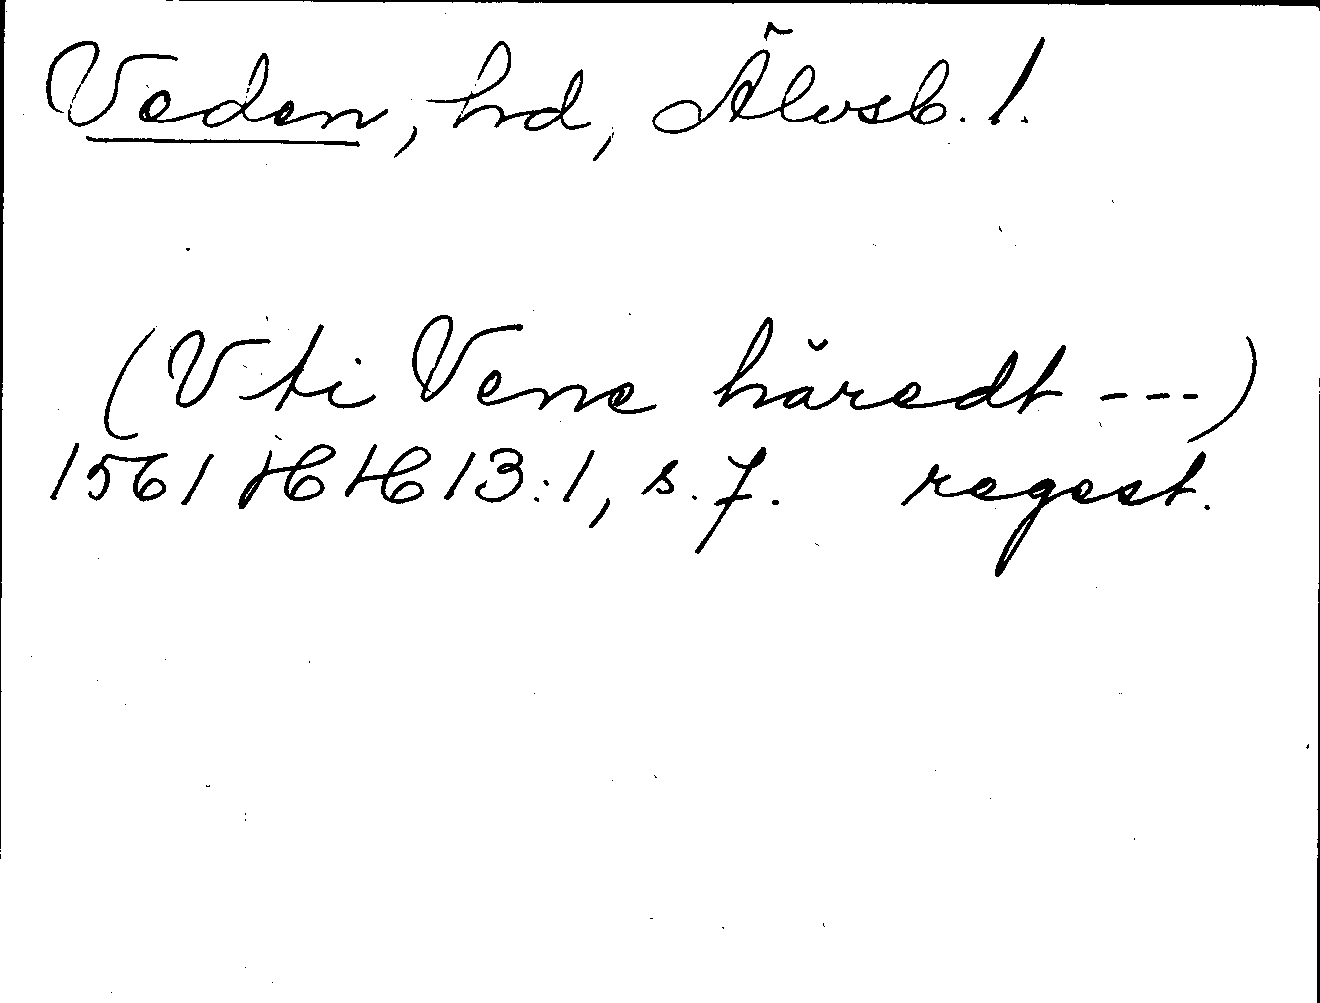 Veden, hd, Älvsb. l.
(Vti Vene häredt ---)
1561 HH 13:1, s. 7. regest.